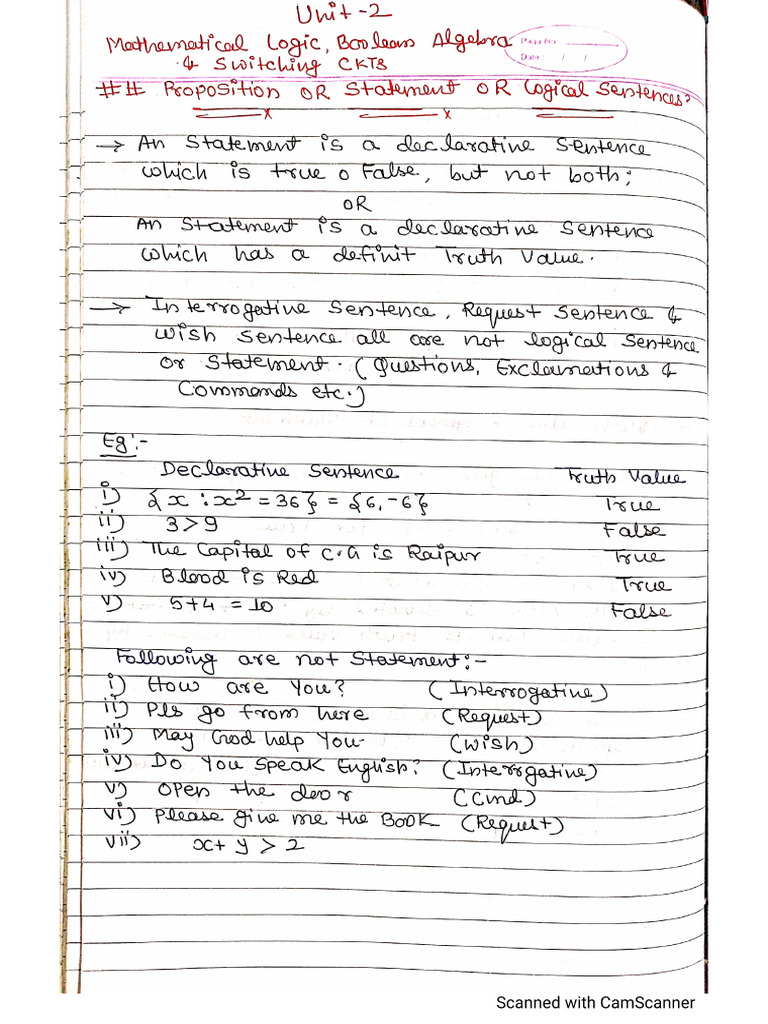 Unit-2
Mathematical Logic, Boolean Algebra
& Switching CKTs
Page No.
Date: / /
## Proposition OR Statement OR Logical Sentences:
→ An Statement is a declarative Sentence
which is true o False, but not both;
OR
An Statement is a declarative Sentence
which has a definit Truth Value.
→ Interrogative Sentence, Request Sentence &
wish Sentence all are not logical Sentence
or Statement. (Questions, Exclamations &
Commands etc.)
Eg:-
Declarative Sentence Truth Value
i) {x : x² = 36} = {6, -6} True
ii) 3 > 9 False
iii) The Capital of C.G is Raipur True
iv) Blood is Red True
v) 5+4 = 10 False
Following are not Statement:-
i) How are You? (Interrogative)
ii) Pls go from here (Request)
iii) May God help You (wish)
iv) Do You Speak English? (Interrgative)
v) Open the door (Cmd)
vi) Please give me the Book (Request)
vii) x+ y > 2
Scanned with CamScanner